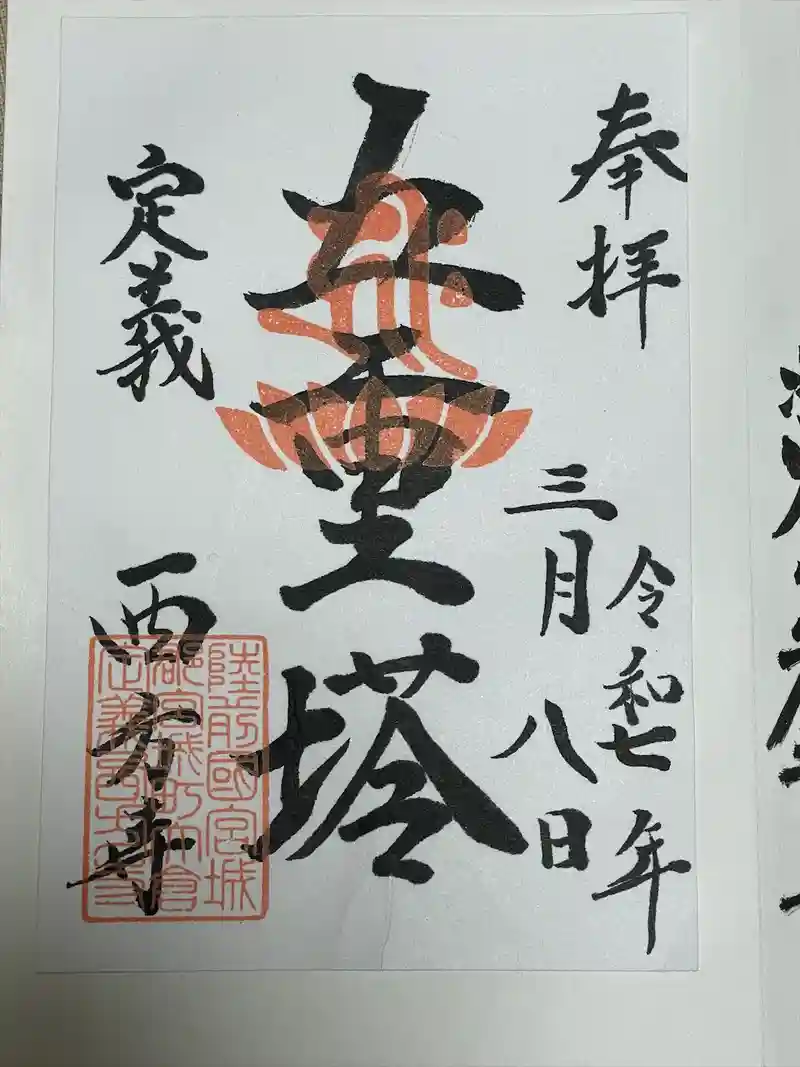 奉拝
令和七年
三月八日
五重塔
定義
西方寺
陸前國宮城